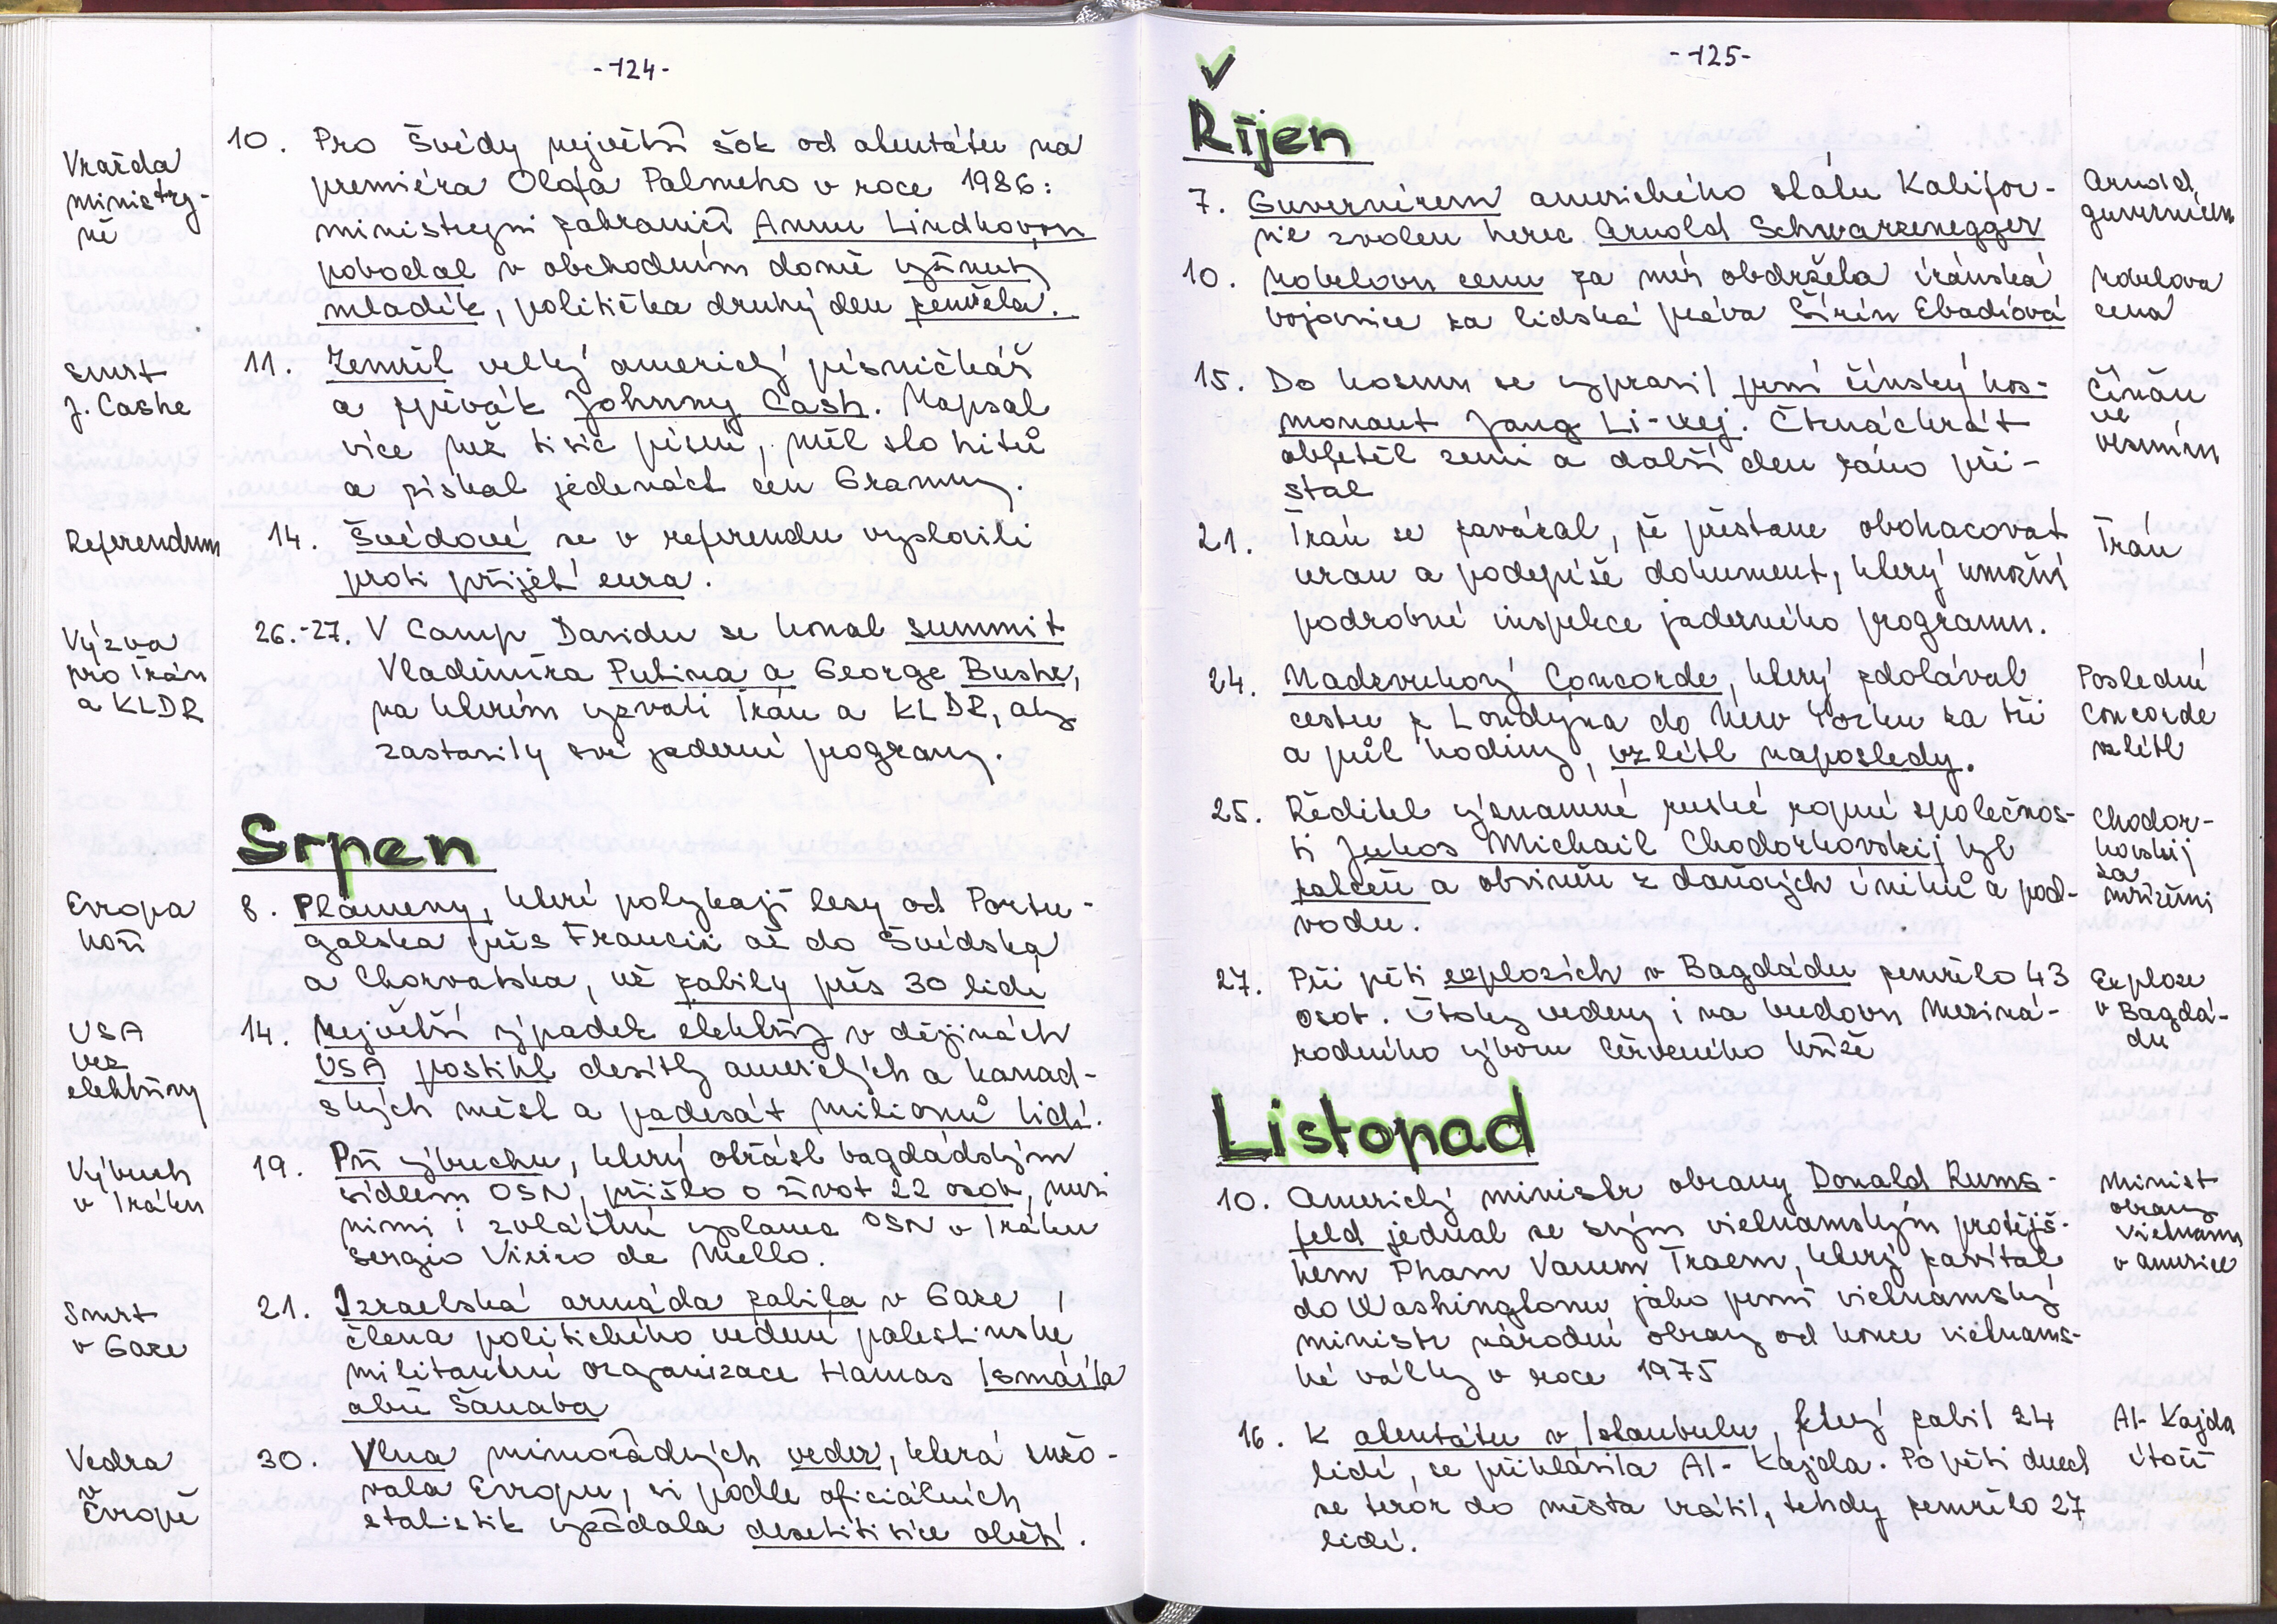 -124-
Vražda
ministry-
ně
10. Pro Švédy největší šok od atentátu na
premiéra Olofa Palmeho v roce 1986:
ministryni zahraničí Annu Lindhovou
pobodal v obchodním domě vyšinutý
mladík, politička druhý den zemřela.
Smrt
J. Cashe
11. Zemřel velký americký písničkář
a zpěvák Johnny Cash. Napsal
více než tisíc písní. Měl sto hitů
a získal jedenáct cen Grammy.
Referendum
14. Švédové se v referendu vyslovili
proti přijetí eura.
Výzva
pro Írán
a KLDR
26.-27. V Camp Davidu se konal summit
Vladimíra Putina a George Bushe,
na kterém vyzvali Írán a KLDR, aby
zastavily své jaderné programy.
Srpen
Evropa
hoří
8. Plameny, které polykají lesy od Portu-
galska přes Francii až do Švédska
a Chorvatska, už zabily přes 30 lidí
USA
bez
elektřiny
14. Největší výpadek elektřiny v dějinách
USA postihl desítky amerických a kanad-
ských měst a padesát milionů lidí.
Výbuch
v Iráku
19. Při výbuchu, který otřásl bagdádským
sídlem OSN, přišlo o život 22 osob, mezi
nimi i zvláštní vyslanec OSN v Iráku
Sergio Vieiro de Mello.
Smrt
v Gaze
21. Izraelská armáda zabila v Gaze
člena politického vedení palestinské
militantní organizace Hamas Ismáíla
abú Šanaba
Vedra
v
Evropě
30. Vlna mimořádných veder, která sužo-
vala Evropu, si podle oficiálních
statistik vyžádala desetitisíce obětí.
-125-
Říjen
7. Guvernérem amerického státu Kalifor-
nie zvolen herec Arnold Schwarzenegger
Arnold
guvernérem
10. Nobelovu cenu za mír obdržela íránská
bojovnice za lidská práva Šírín Ebadíová
Nobelova
cena
15. Do kosmu se vypravil první čínský kos-
monaut Jang Li-wej. Čtrnáctkrát
obletěl zemi a další den ráno při-
stál
Číňan
ve
vesmíru
21. Írán se zavázal, že přestane obohacovat
uran a podepíše dokument, který umožní
podrobné inspekce jaderného programu.
Írán
24. Nadzvukový Concorde, který zdolával
cestu z Londýna do New Yorku za tři
a půl hodiny, vzlétl naposledy.
Poslední
Concorde
vzlétl
25. Ředitel významné ruské ropné společnos-
ti Jukos Michail Chodorkovskij byl
zatčen a obviněn z daňových úniků a pod-
vodu.
Chodor-
kovskij
za
mřížemi
27. Při pěti explozích v Bagdádu zemřelo 43
osob. Útoky vedeny i na budovu Meziná-
rodního výboru Červeného kříže
Exploze
v Bagdá-
du
Listopad
10. Americký ministr obrany Donald Rums-
feld jednal se svým vietnamským protějš-
kem Pham Vanem Traem, který zavítal
do Washingtonu jako první vietnamský
ministr národní obrany od konce vietnams-
ké války v roce 1975
Ministr
obrany
Vietnamu
v Americe
16. K atentátu v Istanbulu, který zabil 24
lidí, se přihlásila Al-Kajda. Po pěti dnech
se teror do města vrátil, tehdy zemřelo 27
lidí.
Al-Kajda
útočí